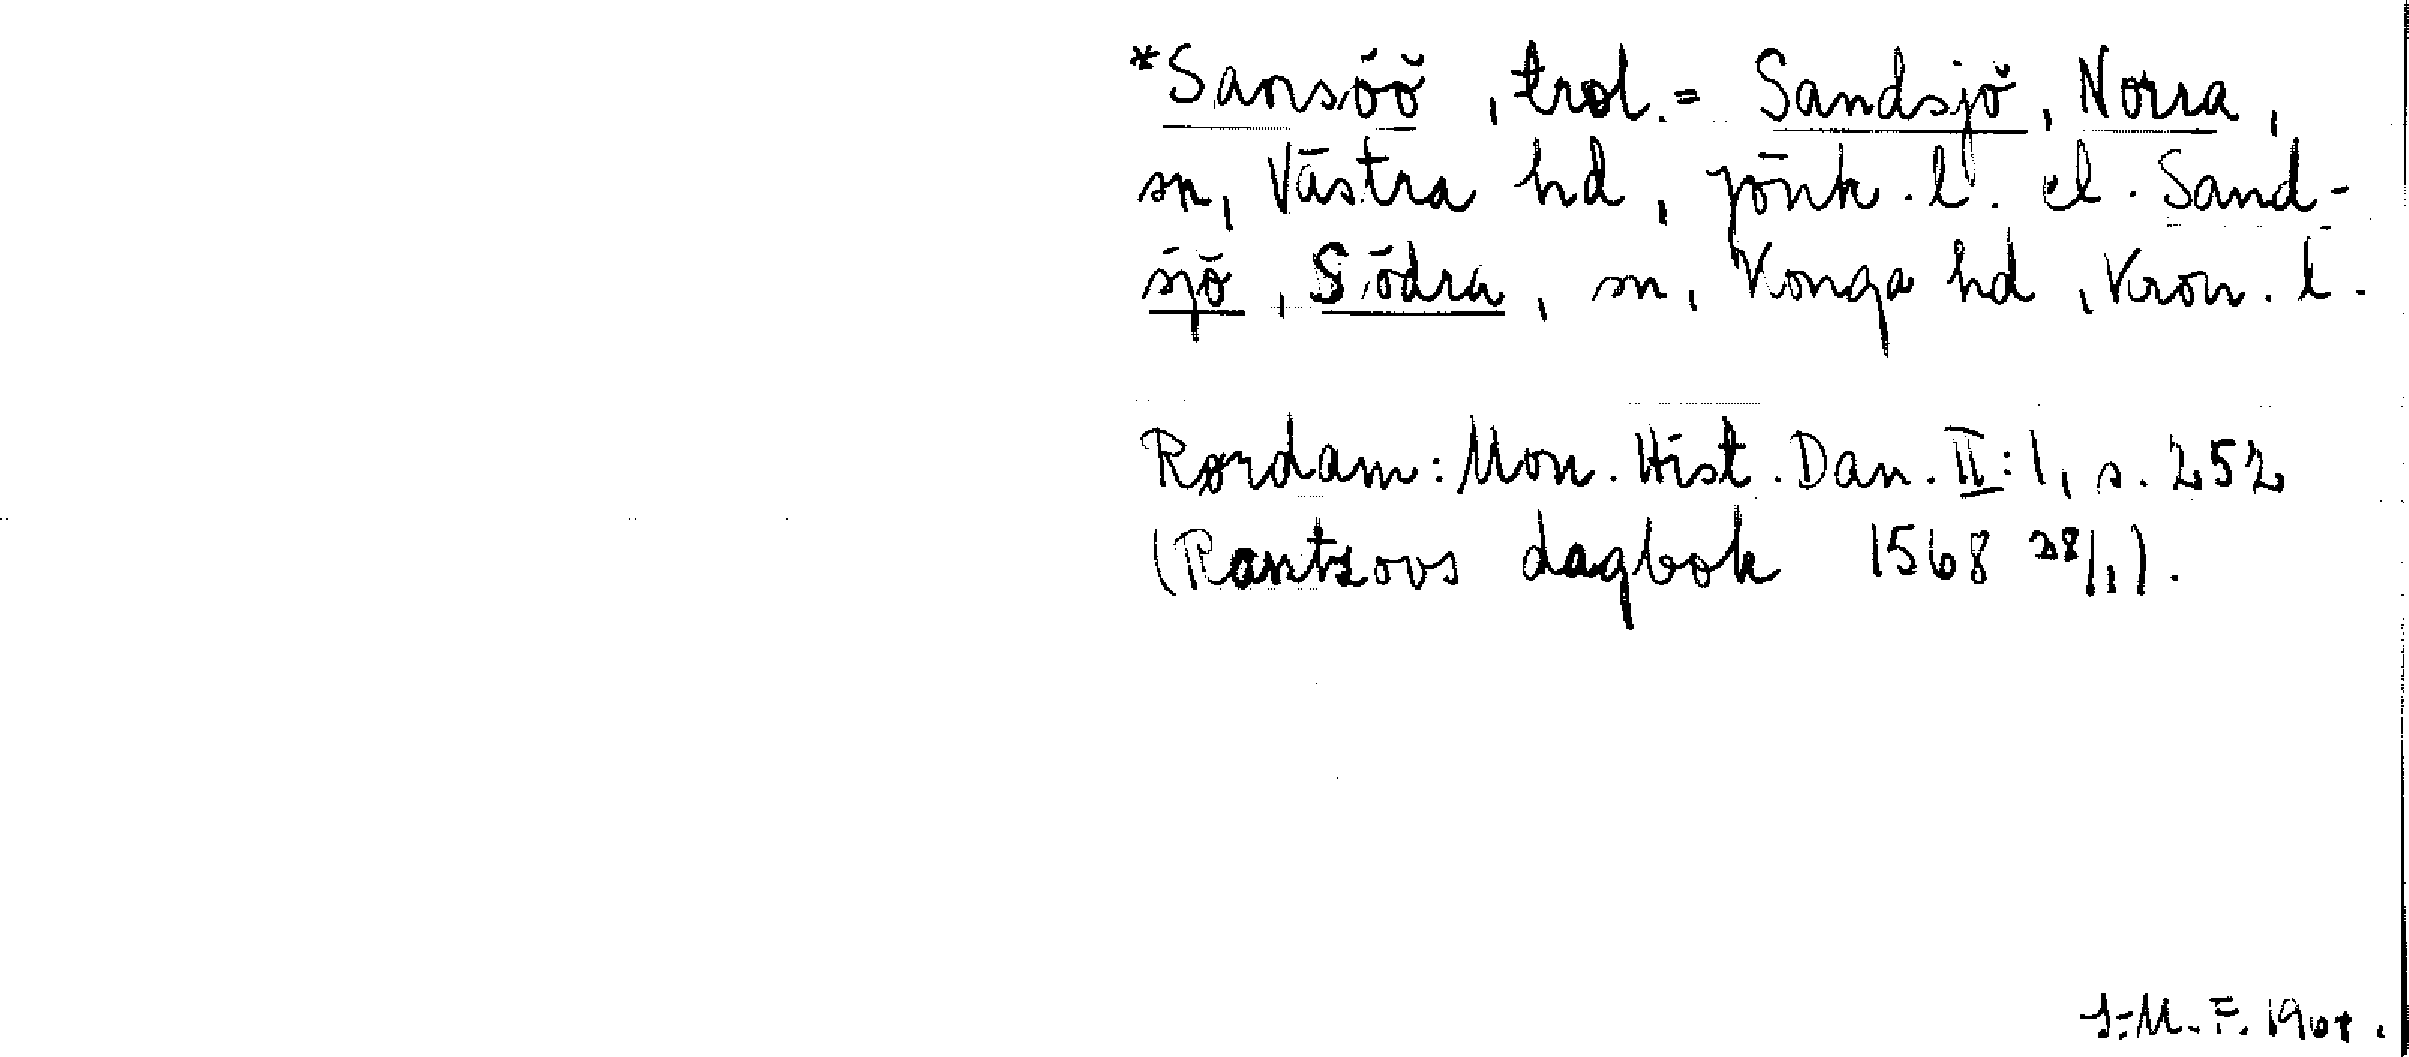 *Sansöö, trol. = Sandsjö, Norra,
sn, Västra hd, Jönk. l. el. Sand-
sjö, Södra, sn, Konga hd, Kron. l.
Rørdam: Mon. Hist. Dan. II:1, s. 252
(Rantzovs dagbok 1568 28/1).